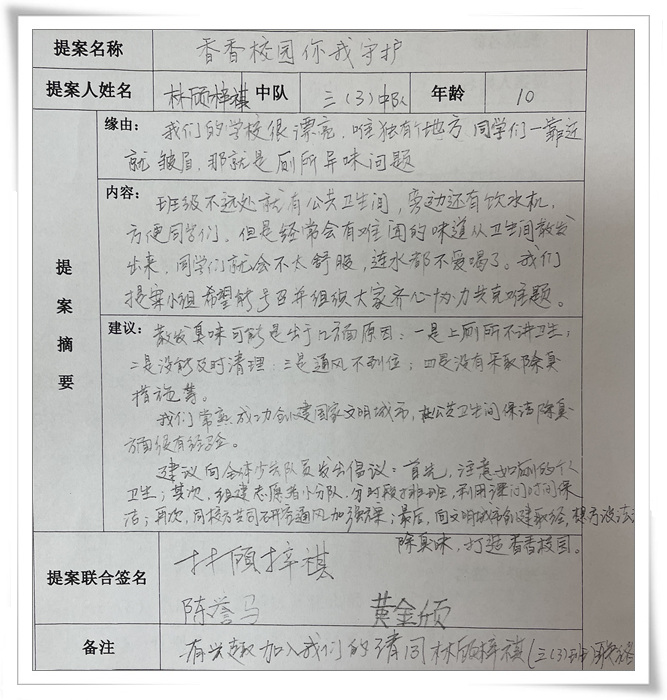 提案名称 香香校园你我守护
提案人姓名 林顾梓祺 中队 三(3)中队 年龄 10
提案摘要
缘由: 我们的学校很漂亮,唯独有个地方,同学们一靠近
就皱眉,那就是厕所异味问题
内容: 班级不远处就有公共卫生间,旁边还有饮水机,
方便同学们。但是经常会有难闻的味道从卫生间散发
出来,同学们就会不太舒服,连水都不爱喝了。我们
提案小组希望能号召并组织大家齐心协力共克难题。
建议: 散发臭味可能是出于几方面原因:一是上厕所不讲卫生;
二是没能及时清理;三是通风不到位;四是没有采取除臭
措施等。
我们常熟成功创建国家文明城市,在公共卫生间保洁除臭
方面很有经验。
建议向全体少先队员发出倡议:首先,注意如厕的个人
卫生;其次,组建志愿者小分队,分时段排班,利用课间时间保
洁;再次,同校方共同研究通风加强方案;最后,向文明城市创建取经,想方设法
除臭味,打造香香校园。
提案联合签名 林顾梓祺
陈誉马 黄金颀
备注 有兴趣加入我们的请同林顾梓祺(三(3)班)联络